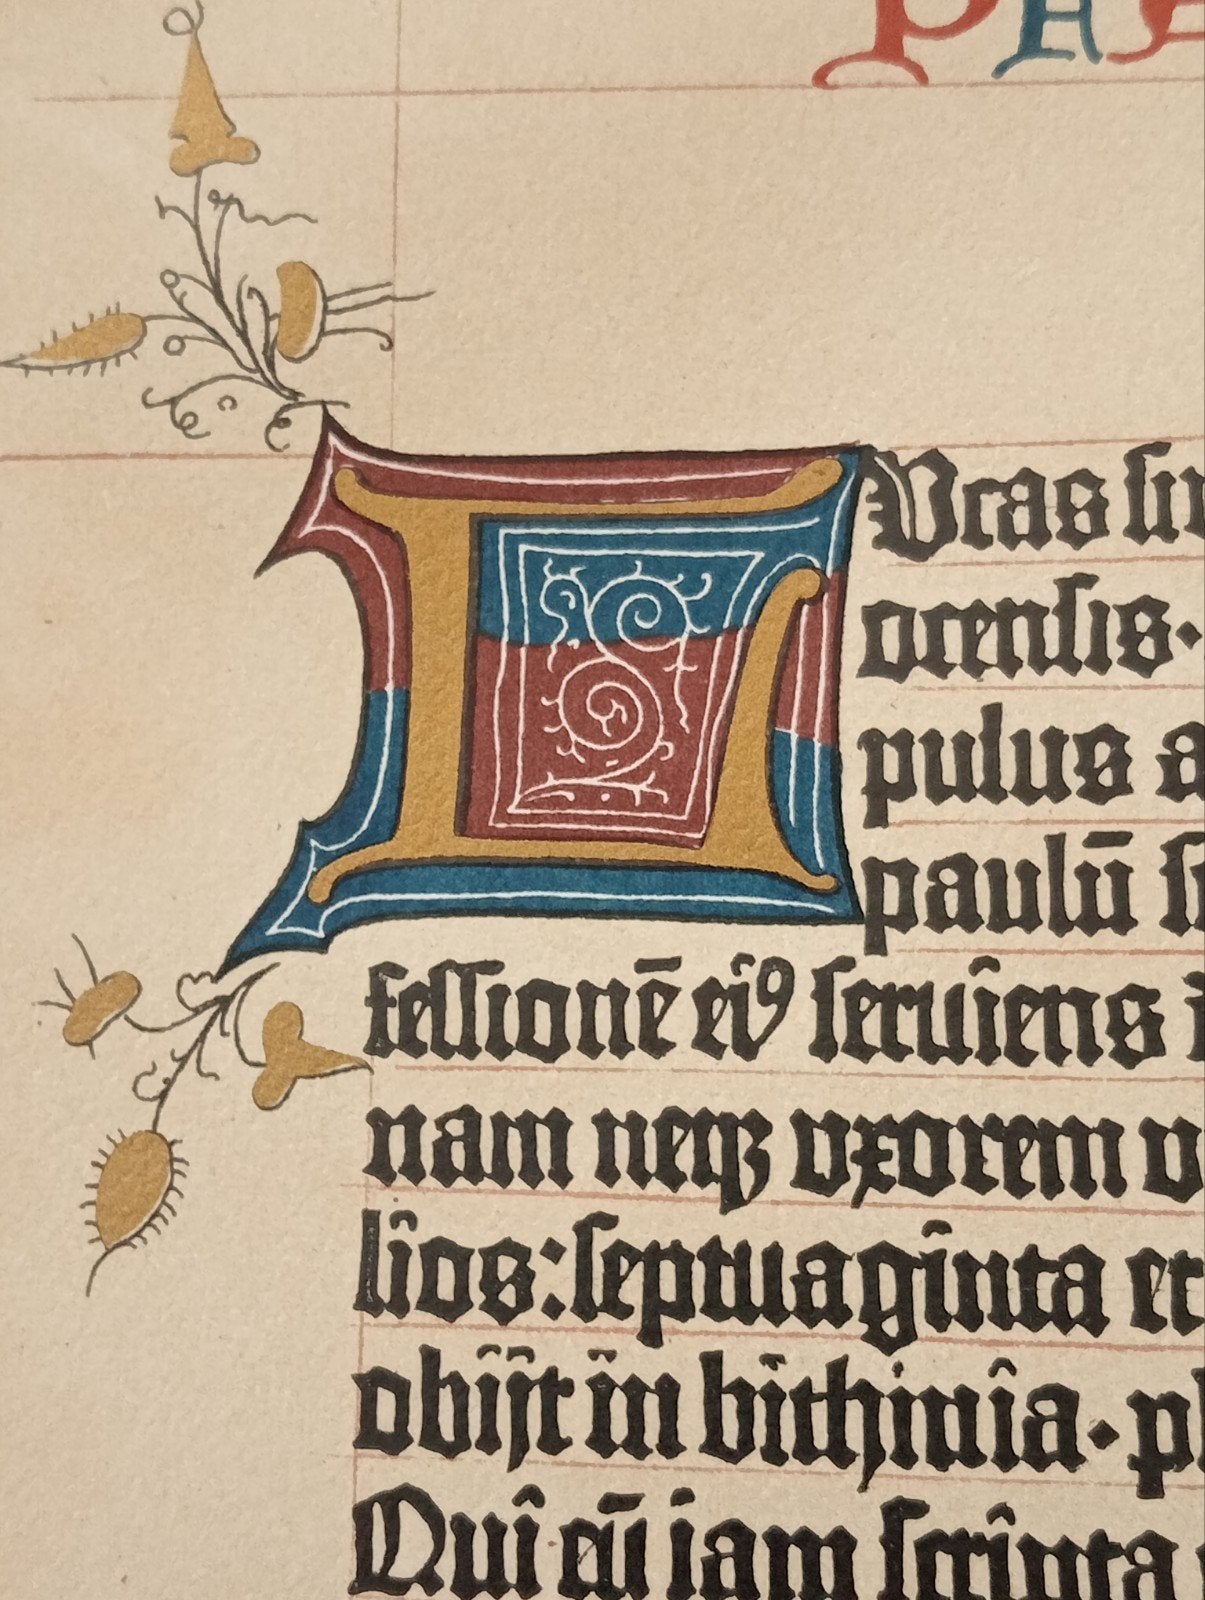 PRE
LVcas si
orensis·
pulus a
paulū s
fessionē ei⁹ seruiens i
nam neqꝫ vxorem v
lios: septuaginta et
obijt in bithinia· p
Qui cū iam scripta